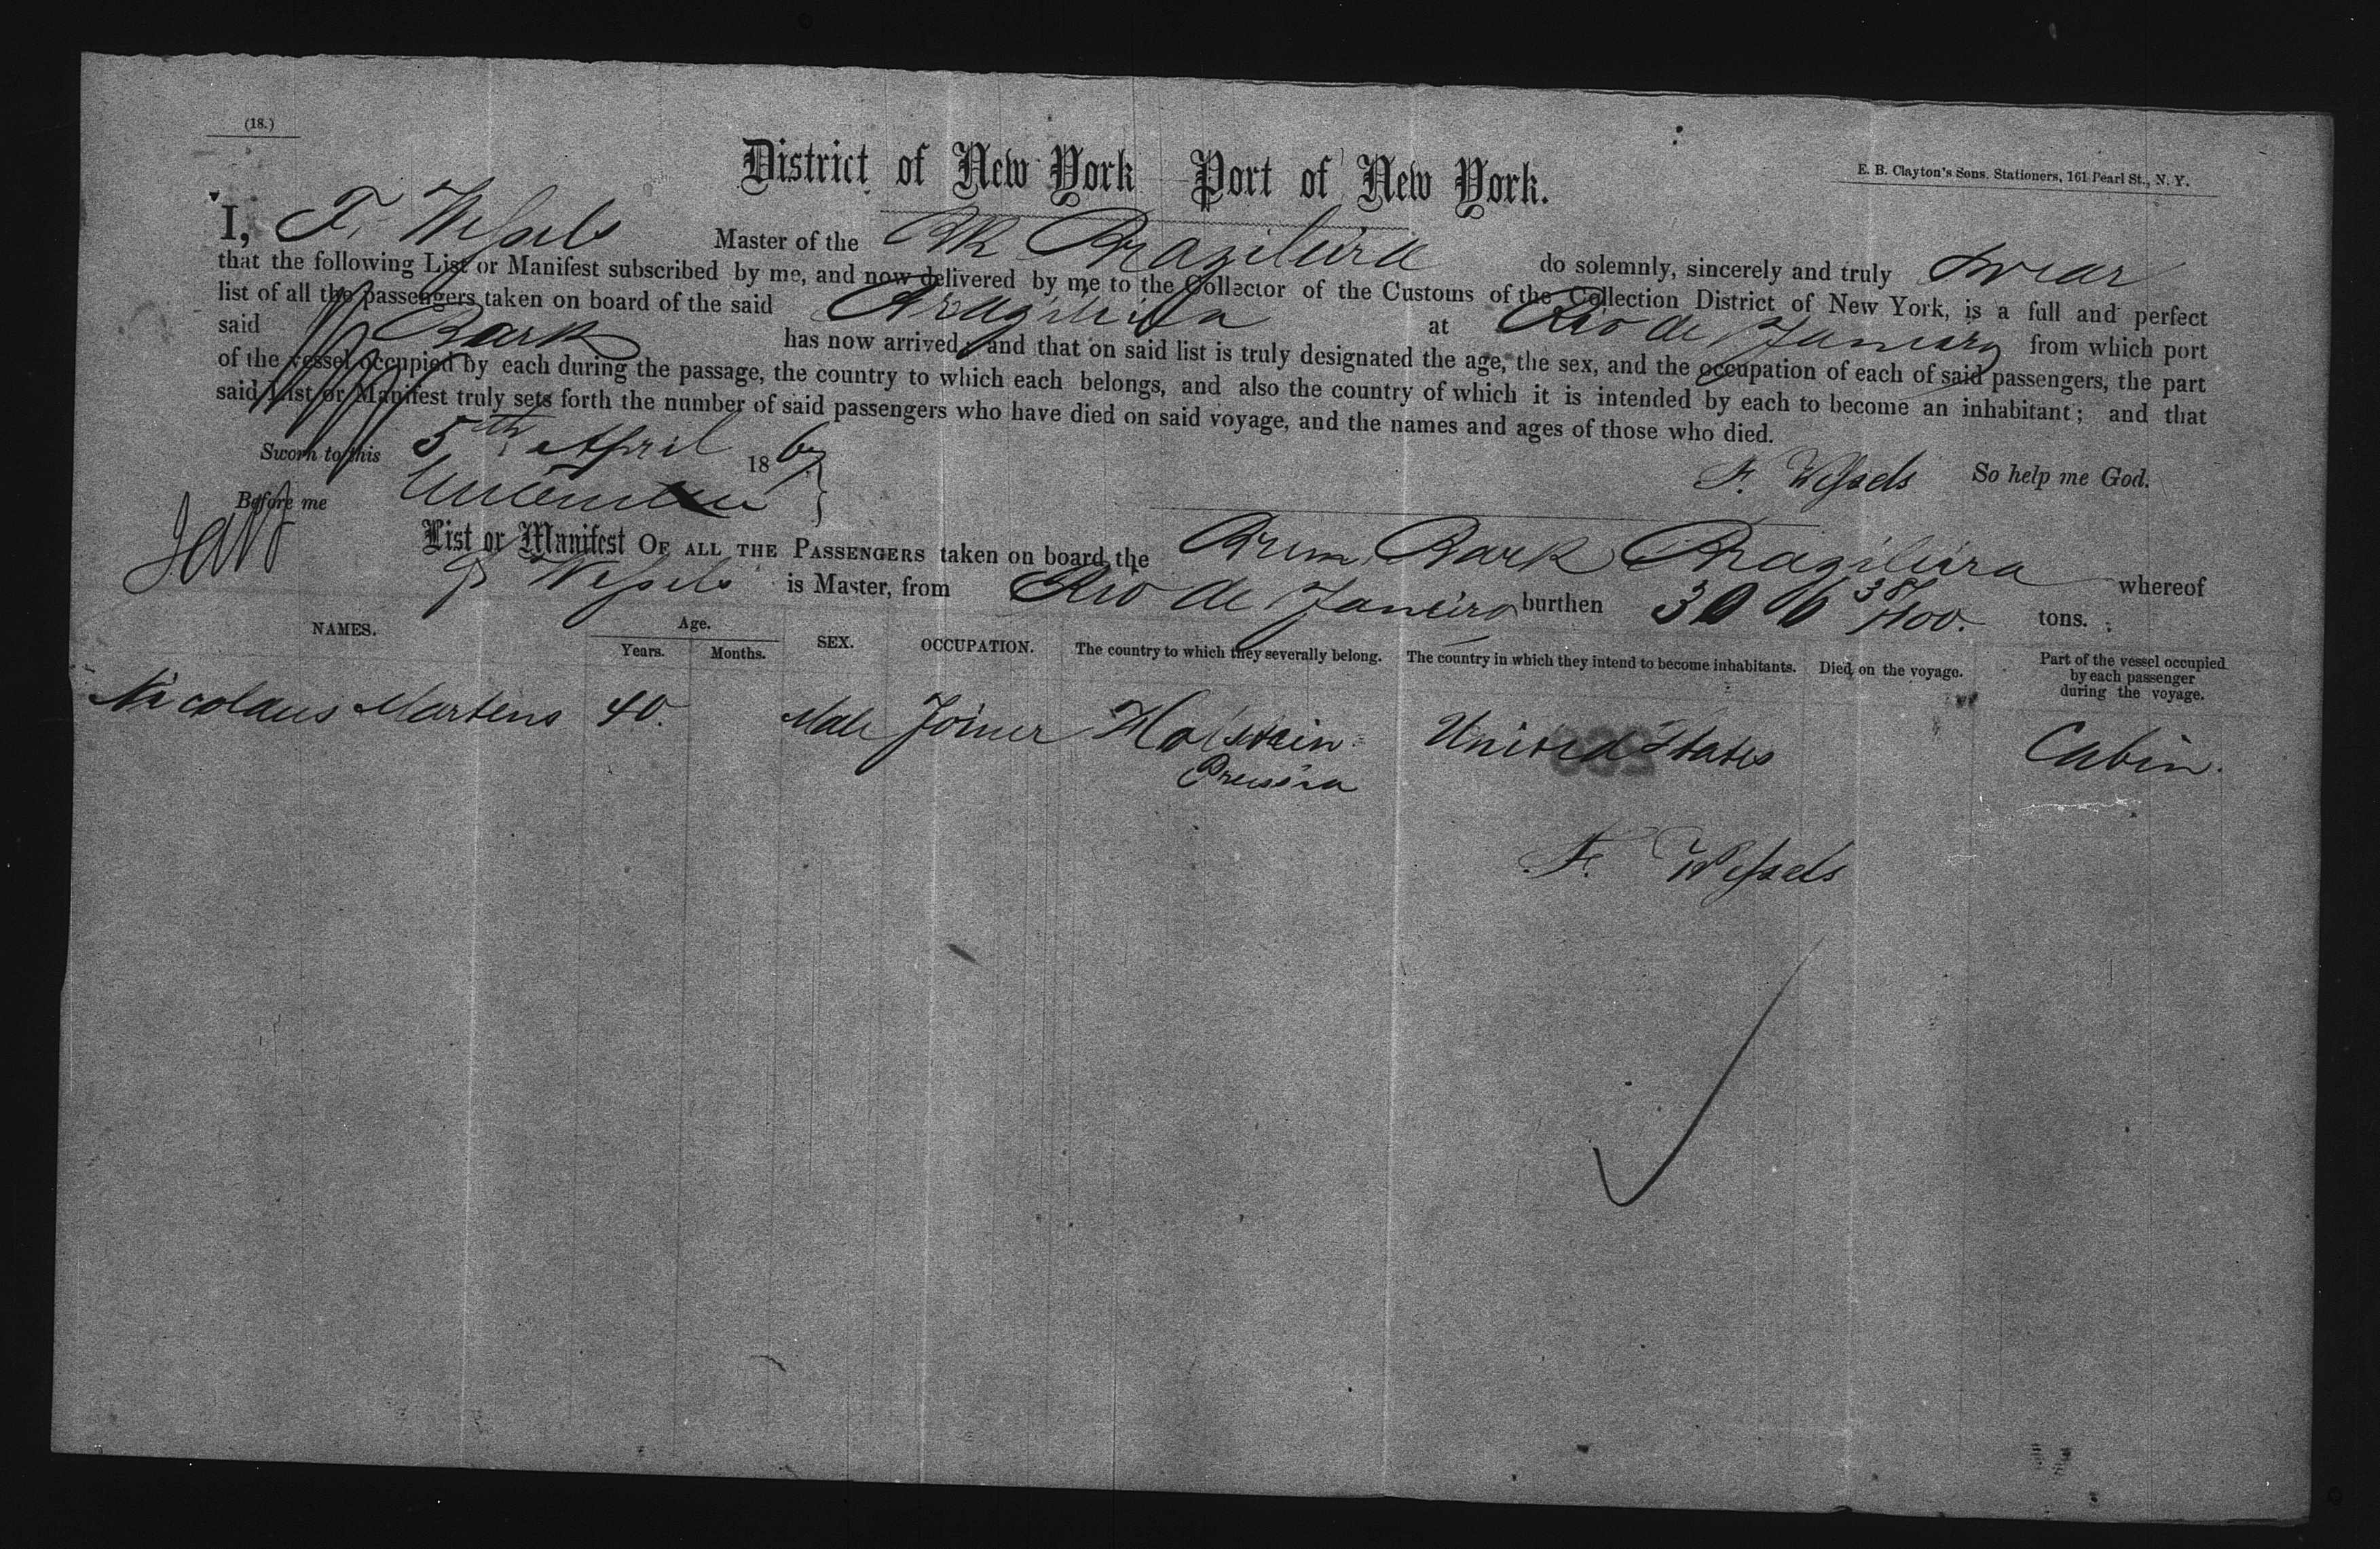 (18.)
District of New York Port of New York.
E. B. Clayton's Sons, Stationers, 161 Pearl St., N. Y.
I, F. Wessels Master of the Bk Brazileira do solemnly, sincerely and truly swear
that the following List or Manifest subscribed by me, and now delivered by me to the Collector of the Customs of the Collection District of New York, is a full and perfect
list of all the passengers taken on board of the said Brazileira at Rio de Janeiro from which port
said Bark has now arrived, and that on said list is truly designated the age, the sex, and the occupation of each of said passengers, the part
of the vessel occupied by each during the passage, the country to which each belongs, and also the country of which it is intended by each to become an inhabitant; and that
said List or Manifest truly sets forth the number of said passengers who have died on said voyage, and the names and ages of those who died.
Sworn to this 5th April 1867
F. Wessels So help me God.
Before me
List or Manifest OF ALL THE PASSENGERS taken on board the Brem Bark Brazileira whereof
F Wessels is Master, from Rio de Janeiro burthen 306 38/100. tons.
NAMES. Age. Years. Months. SEX. OCCUPATION. The country to which they severally belong. The country in which they intend to become inhabitants. Died on the voyage. Part of the vessel occupied by each passenger during the voyage.
Nicolaus Martens 40. Male Joiner Holstein United States Cabin.
Preussia
F. Wessels